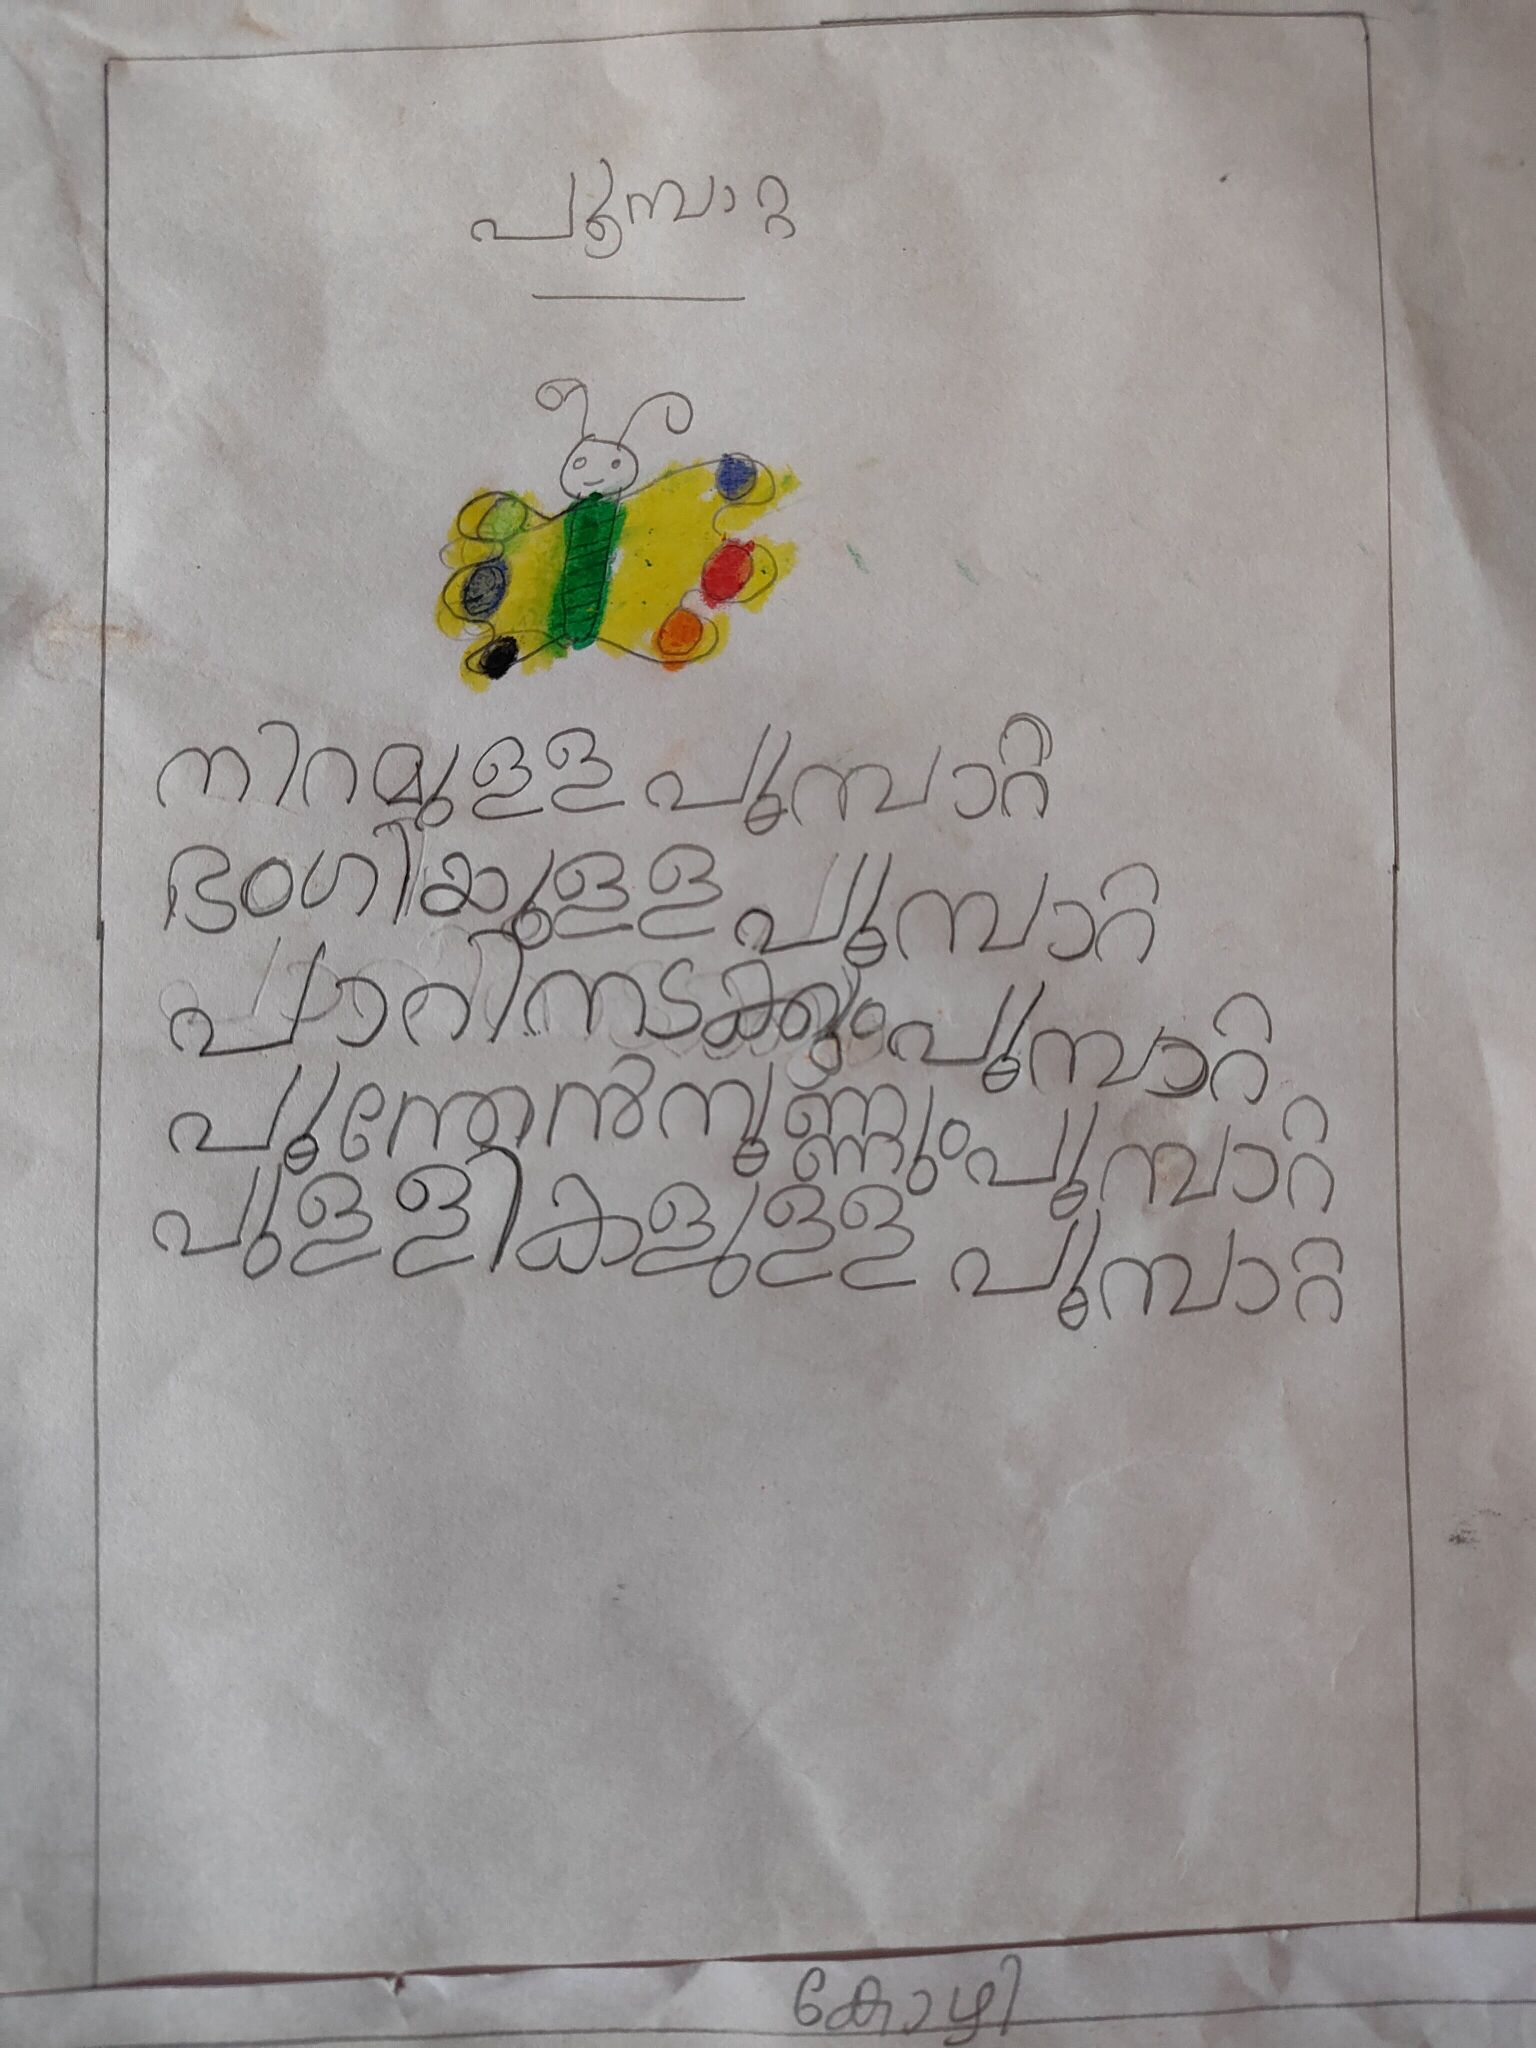 പൂമ്പാറ്റ
നിറമുള്ള പൂമ്പാറ്റ
ഭംഗിയുള്ള പൂമ്പാറ്റ
പാറിനടക്കും പൂമ്പാറ്റ
പൂന്തേൻനുണ്ണും പൂമ്പാറ്റ
പുള്ളികളുള്ള പൂമ്പാറ്റ
കോഴി